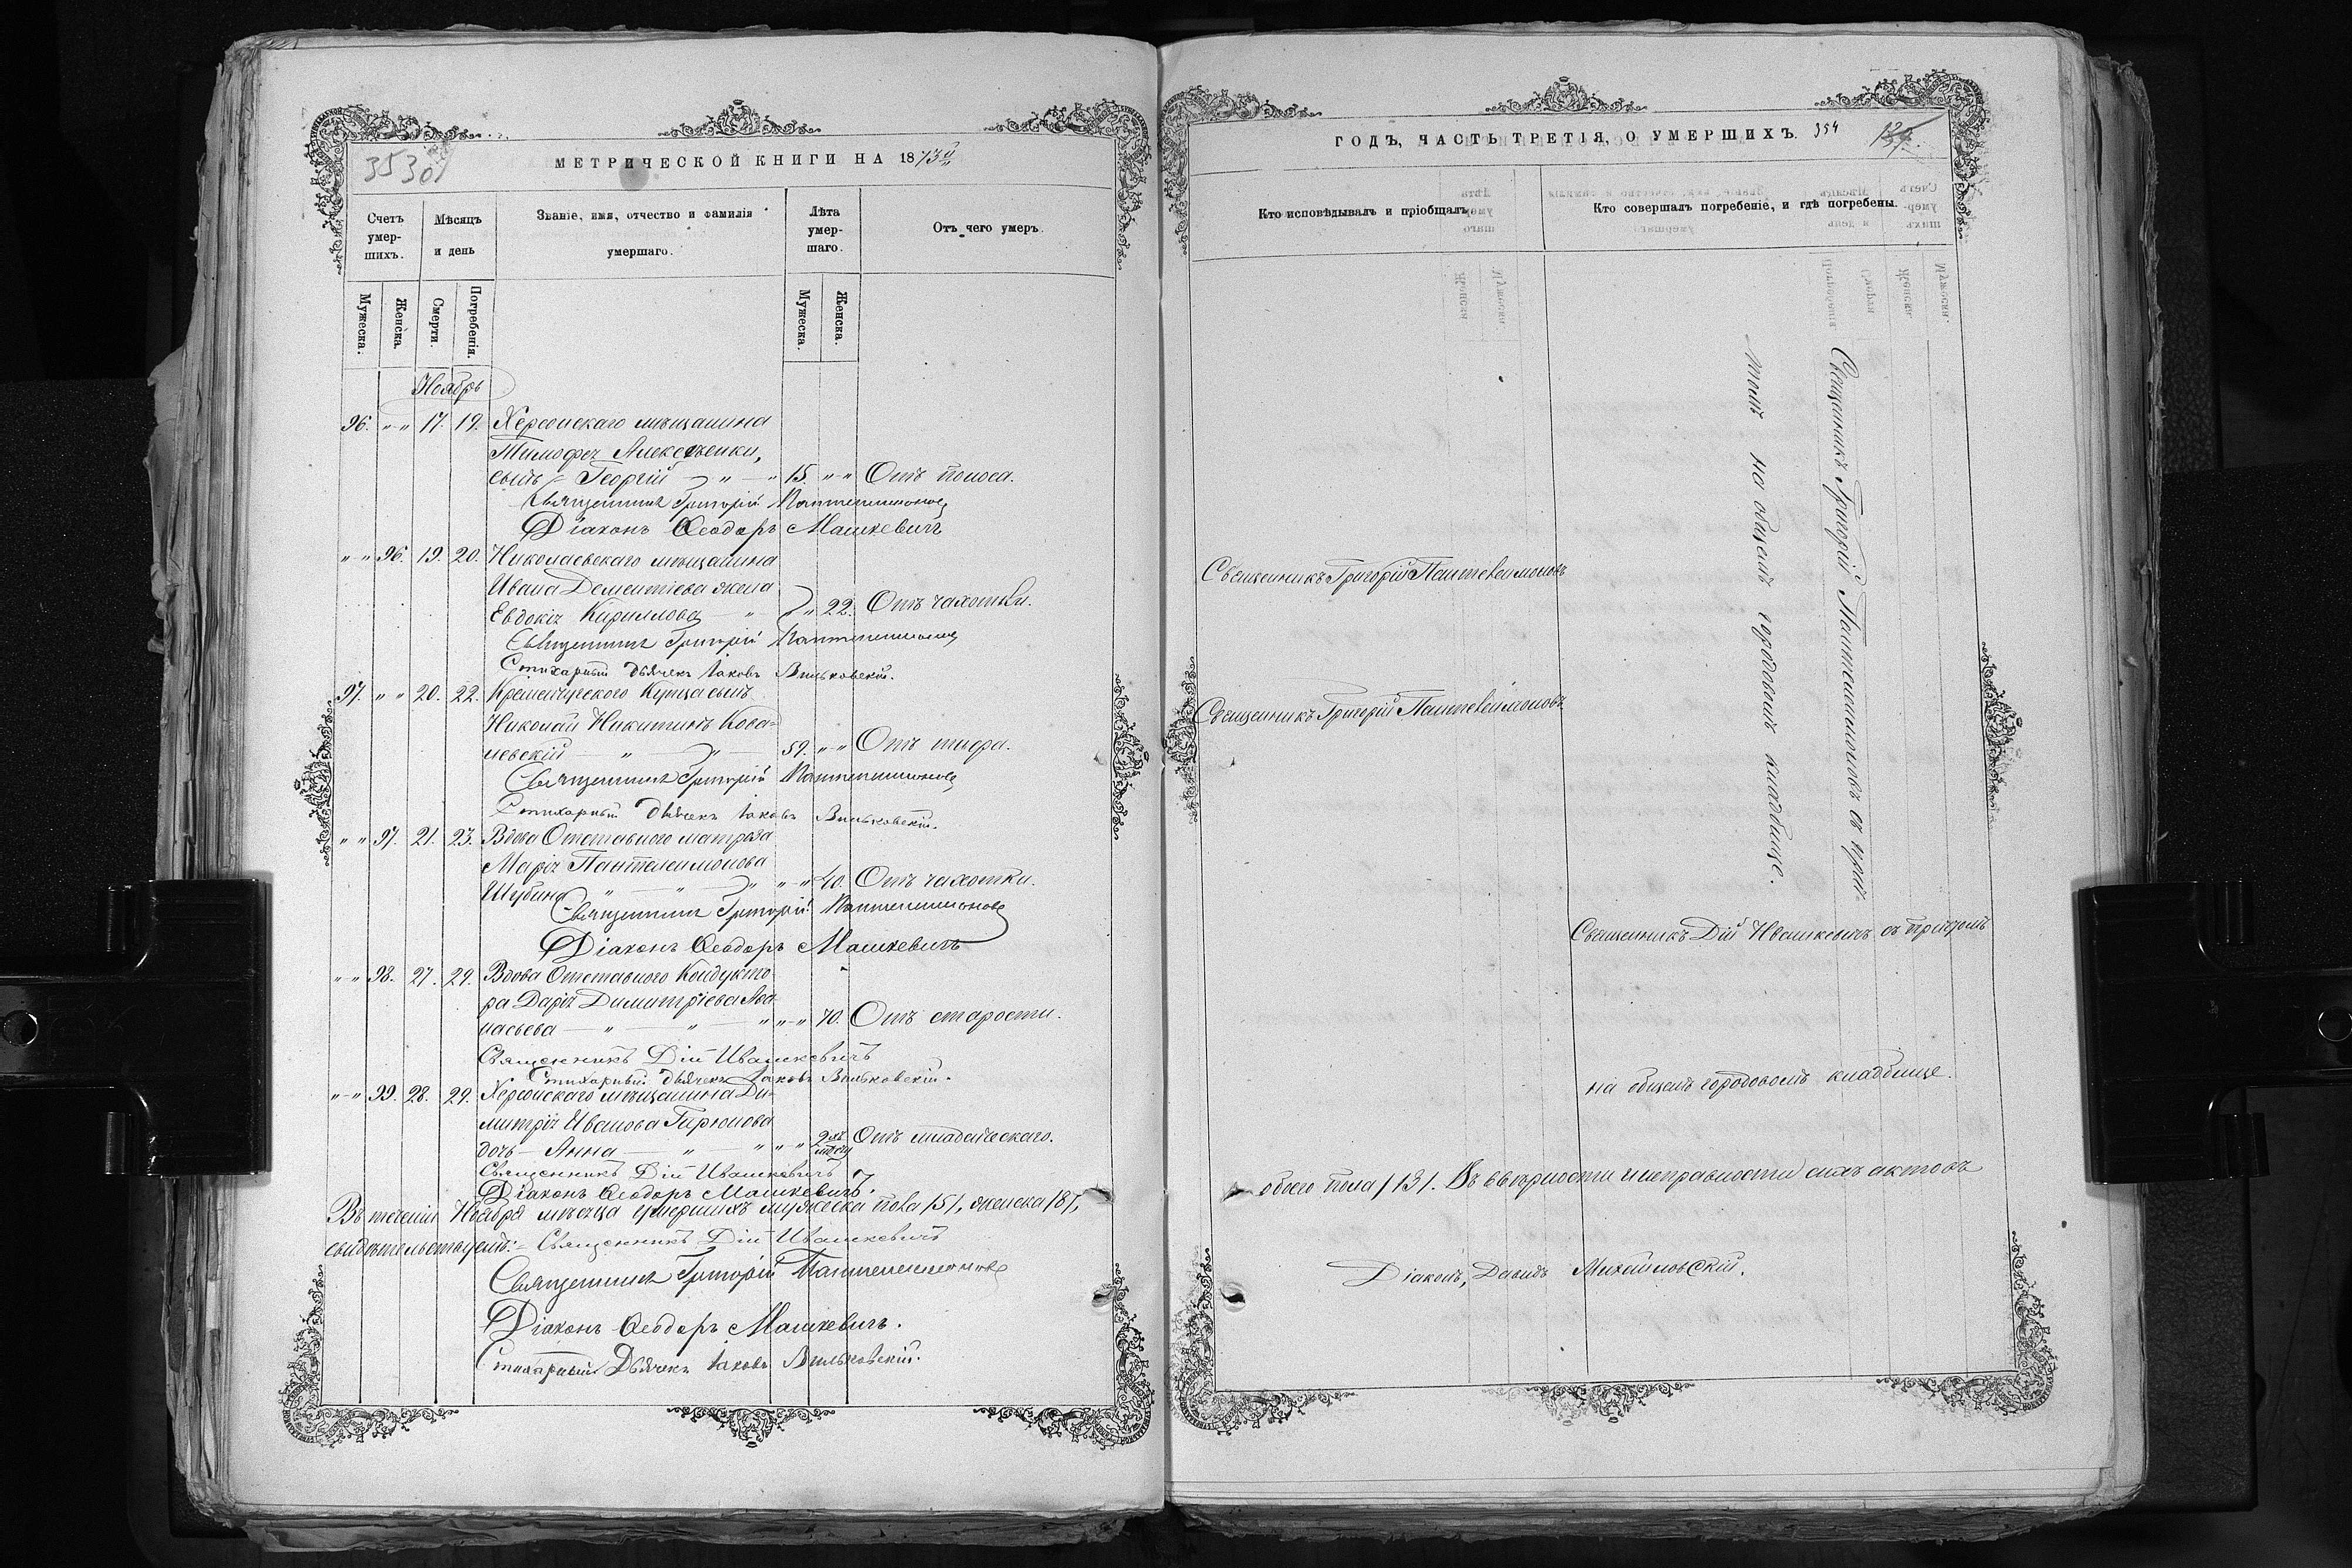 МЕТРИЧЕСКОЙ КНИГИ НА 1873й
Счетъ умер-шихъ.
Мѣсяцъ и день
Званіе, имя, отчество и фамилія умершаго.
Лѣта умер-шаго.
Отъ чего умеръ.
Мужеска.
Женска.
Смерти.
Погребенія.
Мужеска.
Женска.
Ноябрь
96. " " 17. 19. Херсонскаго мѣщанина
Тимофея Алексѣенки,
сынъ Георгій " 15. " " Отъ поноса.
Священникъ Григорій Пантелеимоновъ
Діаконъ Ѳеодоръ Машкевичъ
" " 96. 19. 20. Николаевскаго мѣщанина
Ивана Дементіева жена
Евдокія Кирилова " " " 22. Отъ чахотки.
Священникъ Григорій Пантелеимоновъ
Стихарный дьячекъ Іаковъ Вильковскій.
97. " " 20. 22. Кременчугскаго Купца сынъ
Николай Никитинъ Кова=
невскій " " 59. " " Отъ тифа.
Священникъ Григорій Пантелеимоновъ
Стихарный дьячекъ Іаковъ Вильковскій.
" " 97. 21. 23. Вдова Отставнаго матроза
Марія Пантелеимонова
Шубина " " " " " 40. Отъ чахотки.
Священникъ Григорій Пантелеимоновъ
Діаконъ Ѳеодоръ Машкевичъ
" " 98. 27. 29. Вдова Отставнаго Кондукто
ра Дарія Димитріева Аѳа
насьева " " " " " 70. Отъ старости.
Священникъ Дій Ивашкевичъ
Стихарный дьячекъ Іаковъ Вильковскій.
" " 99. 28. 29. Херсонскаго мѣщанина Ди=
митрія Иванова
дочь Анна " " " " 2 Отъ младенческаго.
Священникъ Дій Ивашкевичъ
Діаконъ Ѳеодоръ Машкевичъ.
Въ теченіи Ноября мѣсяца умершихъ мужеска пола /5/, женска /8/,
свидѣтельствуемъ: Священникъ Дій Ивашкевичъ
Священникъ Григорій Пантелеимоновъ
Діаконъ Ѳеодоръ Машкевичъ.
Стихарный Дьячекъ Іаковъ Вильковскій.
ГОДЪ, ЧАСТЬ ТРЕТІЯ, О УМЕРШИХЪ. 354
Кто исповѣдывалъ и пріобщалъ.
Кто совершалъ погребеніе, и гдѣ погребены.
Священникъ Григорій Пантелеимоновъ съ прич=
томъ на общемъ городовомъ кладбище.
Священникъ Григорій Пантелеимоновъ
Священникъ Григорій Пантелеимоновъ
Священникъ Дій Ивашкевичъ съ причтомъ
на общемъ городовомъ кладбище.
обоего пола /13/. Въ вѣрности и исправности сихъ актовъ
Діаконъ, Давидъ Михайловскій.